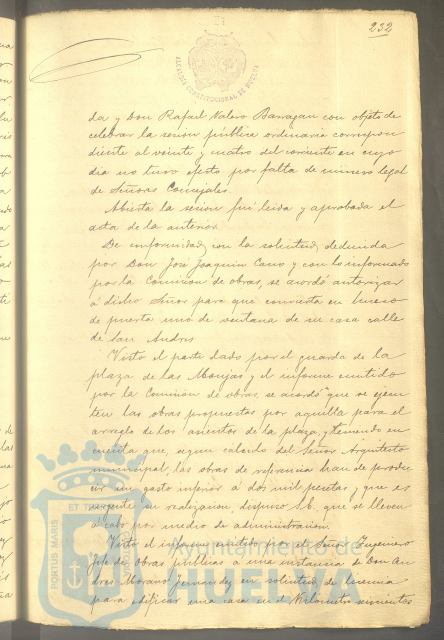 232
ALCALDIA CONSTITUCIONAL DE HUELVA
da y Don Rafael Valero Barragan con objeto de
celebrar la sesion pública ordinaria correspon
diente al veinte y cuatro del corriente en cuyo
dia no tuvo efecto por falta de número legal
de Señores Concejales.
Abierta la sesion fué leida y aprobada el
acta de la anterior.
De conformidad con la solicitud deducida
por Don José Joaquin Cano y con lo informado
por la Comision de obras, se acordó autorizar
á dicho Señor para que convierta en hueco
de puerta uno de ventana de su casa calle
de San Andres
Visto el parte dado por el guarda de la
plaza de las Monjas y el informe emitido
por la Comision de obras, se acordó que se ejecu
ten las obras propuestas por aquella para el
arreglo de los asientos de la plaza, y teniendo en
cuenta que, segun calculo del Señor Arquitecto
municipal, las obras de referencia han de produ
cir un gasto inferior á dos mil pesetas, y que es
urgente su realizacion, dispuso S.E. que se lleven
á cabo por medio de administracion.
Visto el informe emitido por el Señor Ingeniero
Jefe de Obras públicas a una instancia de Don An
dres Morano Fernandez en solicitud de licencia
para edificar una casa en el Kilometro seiscientos
Ayuntamiento de
HUELVA
PORTUS MARIS
ET TERRAE